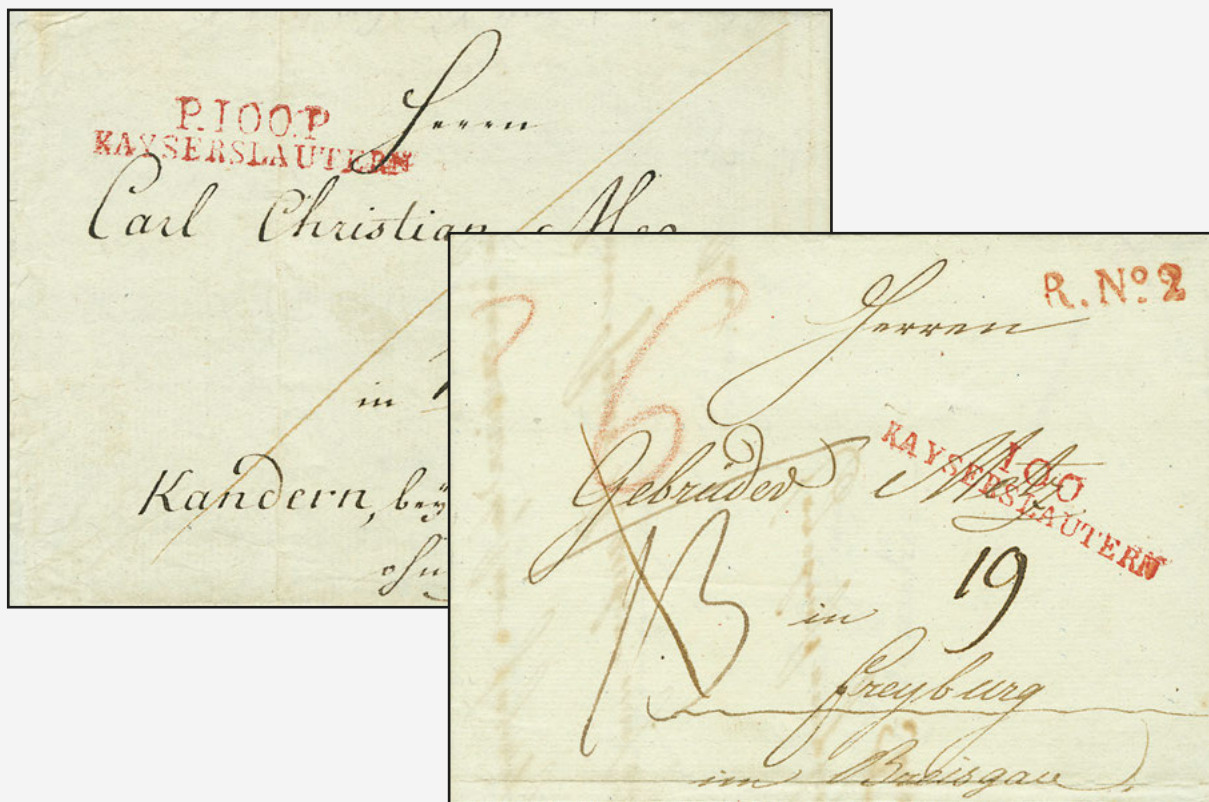 P.100.P
KAYSERSLAUTERN
Herrn
Carl Christian
in
Kandern, bey
R. Nº 2
Herren
6
100
KAYSERSLAUTERN
Gebrüder Metz
13
19
in
Freyburg
im Breisgau